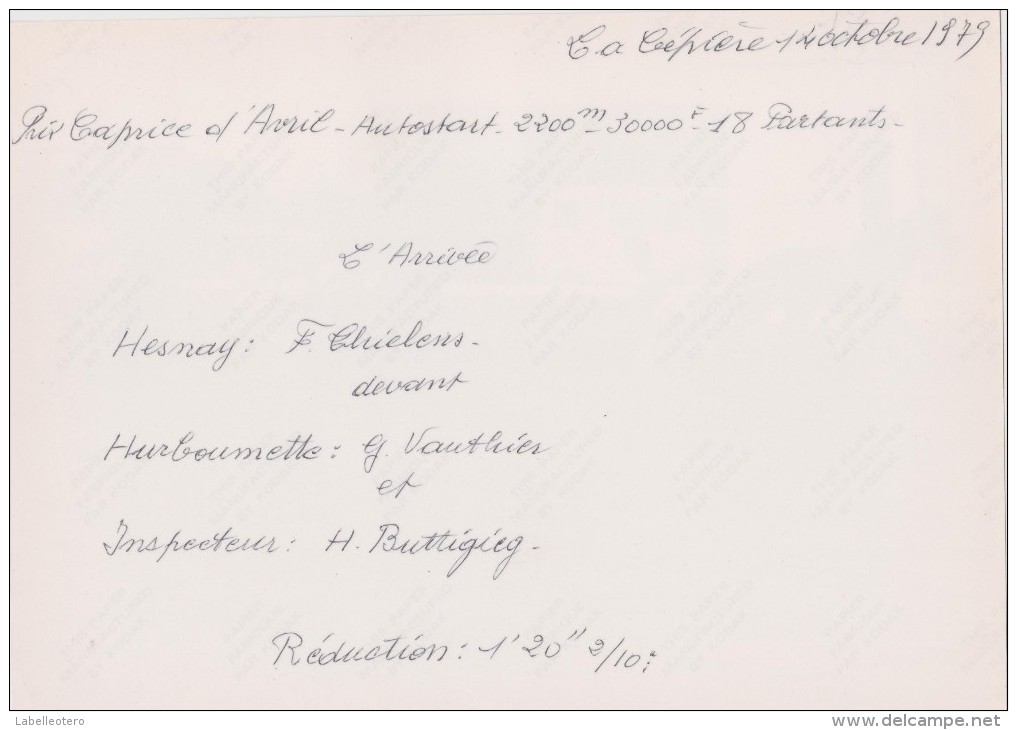 La Cépière 14 octobre 1979
Prix Caprice d'Avril - Autostart - 2200m - 30000F - 18 Partants -
L'Arrivée
Hesnay : F. Thielens -
devant
Hurboumette : G. Vauthier
et
Inspecteur : H. Buttigieg -
Réduction : 1'20" 2/10e
Labelleotero
www.delcampe.net